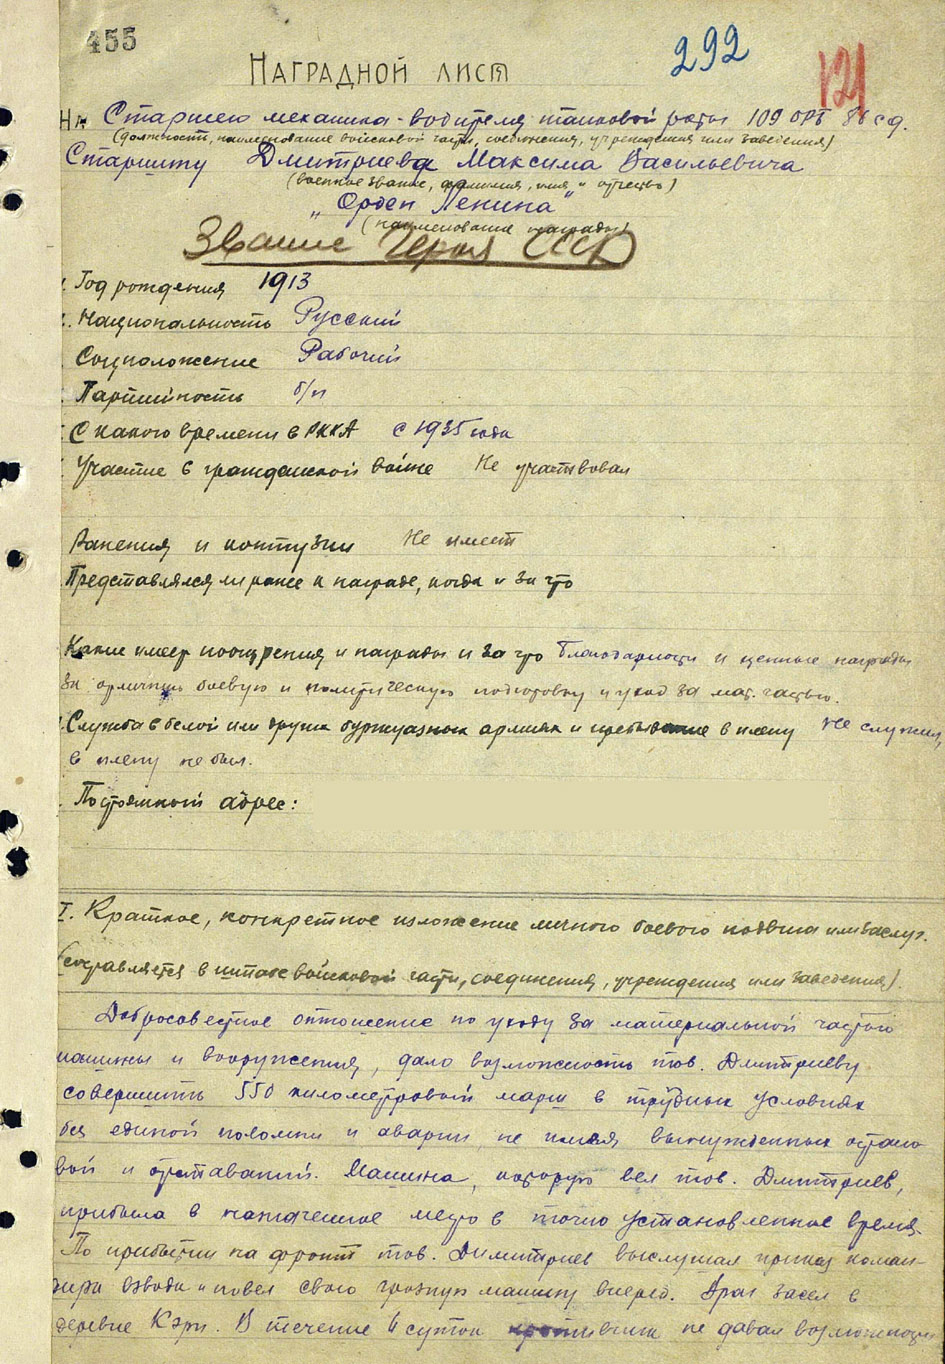 455
292
121
НАГРАДНОЙ ЛИСТ
На Старшего механика-водителя танковой роты 109 ОРБ 86 сд.
(должность, наименование войсковой части, соединения, учреждения или заведения)
Старшину Дмитриева Максима Васильевича
(военное звание, фамилия, имя и отчество)
„Орден Ленина"
(наименование награды)
Звание Героя СССР
Год рождения 1913
Национальность Русский
Соцположение Рабочий
Партийность б/п
С какого времени в РККА с 1935 года
Участие в гражданской войне Не участвовал
Ранения и контузии Не имеет
Представлялся ли ранее к награде, когда и за что
Какие имеет поощрения и награды и за что Благодарности и ценные награды
за отличную боевую и политическую подготовку и уход за мат. частью.
Служба в белой или других буржуазных армиях и пребывание в плену Не служил,
в плену не был.
Постоянный адрес:
I. Краткое, конкретное изложение личного боевого подвига или заслуг.
(составляется в штабе войсковой части, соединения, учреждения или заведения).
Добросовестное отношение по уходу за материальной частью
машины и вооружения, дало возможность тов. Дмитриеву
совершить 550 километровый марш в трудных условиях
без единой поломки и аварии, не имея вынужденных остано
вой и отставаний. Машина, которую вел тов. Дмитриев,
прибыла в назначенное место в точно установленное время.
По прибытии на фронт тов. Димитриев выслушал приказ коман-
дира взвода и повел свою грозную машину вперед. Враг засел в
деревне Кэрн. В течение 4 суток противник не давал возможности